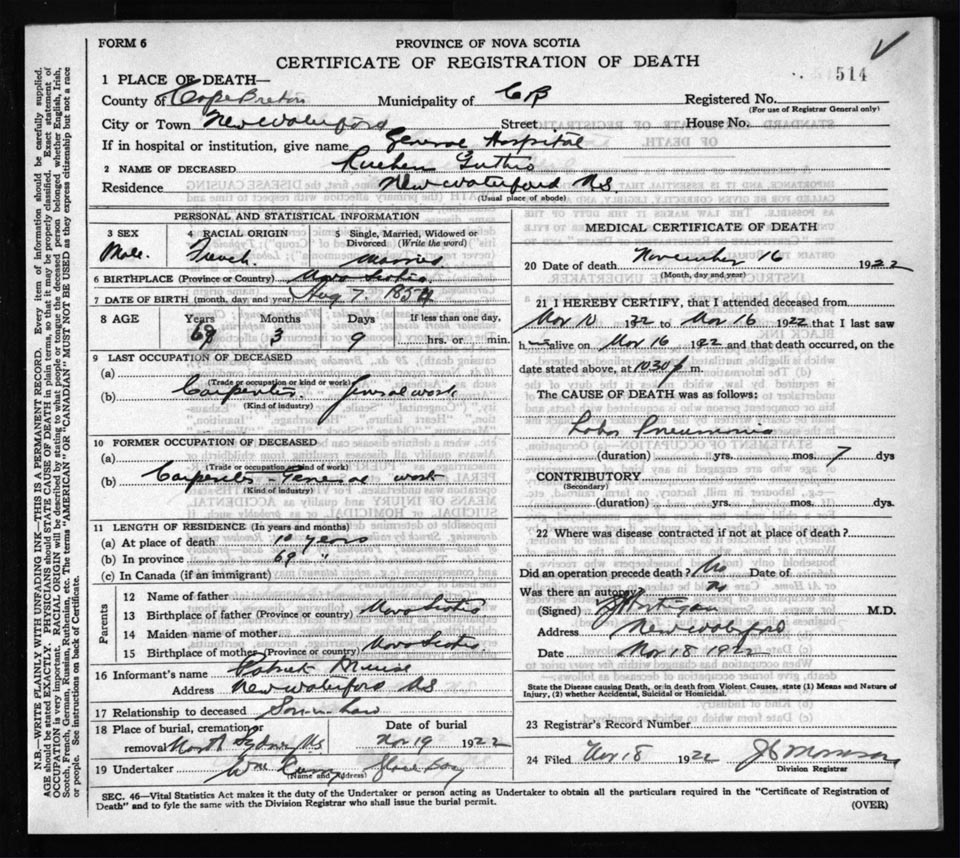 FORM 6
PROVINCE OF NOVA SCOTIA
CERTIFICATE OF REGISTRATION OF DEATH
514
1 PLACE OF DEATH—
County of Cape Breton Municipality of CB Registered No.
(For use of Registrar General only)
City or Town New Waterford Street House No.
If in hospital or institution, give name General Hospital
2 NAME OF DECEASED Rueben Guthro
Residence New Waterford N.S.
(Usual place of abode)
PERSONAL AND STATISTICAL INFORMATION
3 SEX 4 RACIAL ORIGIN 5 Single, Married, Widowed or Divorced (Write the word)
Male. French. Married
6 BIRTHPLACE (Province or Country) Nova Scotia
7 DATE OF BIRTH (month, day and year) Aug 7. 1854
8 AGE Years Months Days If less than one day,
68 3 9 hrs. or min.
9 LAST OCCUPATION OF DECEASED
(a)
(Trade or occupation or kind or work)
(b) Carpenter. General work
(Kind of industry)
10 FORMER OCCUPATION OF DECEASED
(a)
(Trade or occupation or kind of work)
(b) Carpenter - General work
(Kind of industry)
11 LENGTH OF RESIDENCE (In years and months)
(a) At place of death 10 years
(b) In province 69 "
(c) In Canada (if an immigrant)
Parents
12 Name of father
13 Birthplace of father (Province or Country) Nova Scotia
14 Maiden name of mother
15 Birthplace of mother (Province or country) Nova Scotia
16 Informant's name Muise
Address New Waterford NS
17 Relationship to deceased Son-in-law
18 Place of burial, cremation or removal North Sydney NS Date of burial Nov 19 1922
19 Undertaker Wm Glace Bay
(Name and Address)
MEDICAL CERTIFICATE OF DEATH
20 Date of death November 16 1922
(Month, day and year)
21 I HEREBY CERTIFY, that I attended deceased from
Nov 10 1922 to Nov 16 1922 that I last saw
h alive on Nov 16 1922 and that death occurred, on the
date stated above, at 1030 p m.
The CAUSE OF DEATH was as follows:
Lobar Pneumonia
(duration) yrs. mos. 7 dys
CONTRIBUTORY
(Secondary)
(duration) yrs. mos. dys.
22 Where was disease contracted if not at place of death?
Did an operation precede death? No Date of
Was there an autopsy? No
(Signed) M.D.
Address New Waterford
Date Nov 18 1922
State the Disease causing Death, or in death from Violent Causes, state (1) Means and Nature of Injury, (2) whether Accidental, Suicidal or Homicidal.
23 Registrar's Record Number
24 Filed Nov 18 1922
Division Registrar
SEC. 46—Vital Statistics Act makes it the duty of the Undertaker or person acting as Undertaker to obtain all the particulars required in the "Certificate of Registration of
Death" and to fyle the same with the Division Registrar who shall issue the burial permit. (OVER)
N.B.—WRITE PLAINLY WITH UNFADING INK—THIS IS A PERMANENT RECORD. Every item of information should be carefully supplied.
AGE should be stated EXACTLY. PHYSICIANS should STATE CAUSE OF DEATH in plain terms, so that it may be properly classified. Exact statement of
OCCUPATION is very important. RACIAL ORIGIN will be described by stating to what people or tongue the deceased person belonged, whether English, Irish,
Scotch, French, German, Russian, Ruthenian, etc. The terms "AMERICAN" OR "CANADIAN" MUST NOT BE USED as they express citizenship but not a race
or people. See instructions on back of Certificate.